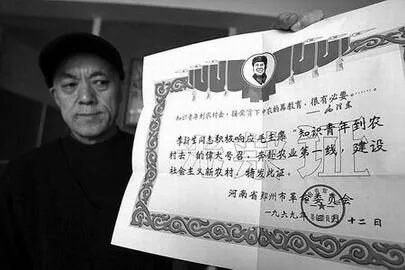 知识青年到农村去，接受贫下中农的再教育，很有必要。……
——毛泽东
李 同志积极响应毛主席“知识青年到农
村去”的伟大号召，奔赴农业第一线，建设
社会主义新农村，特发此证。
河南省郑州市革命委员会
一九六九年 月十二日